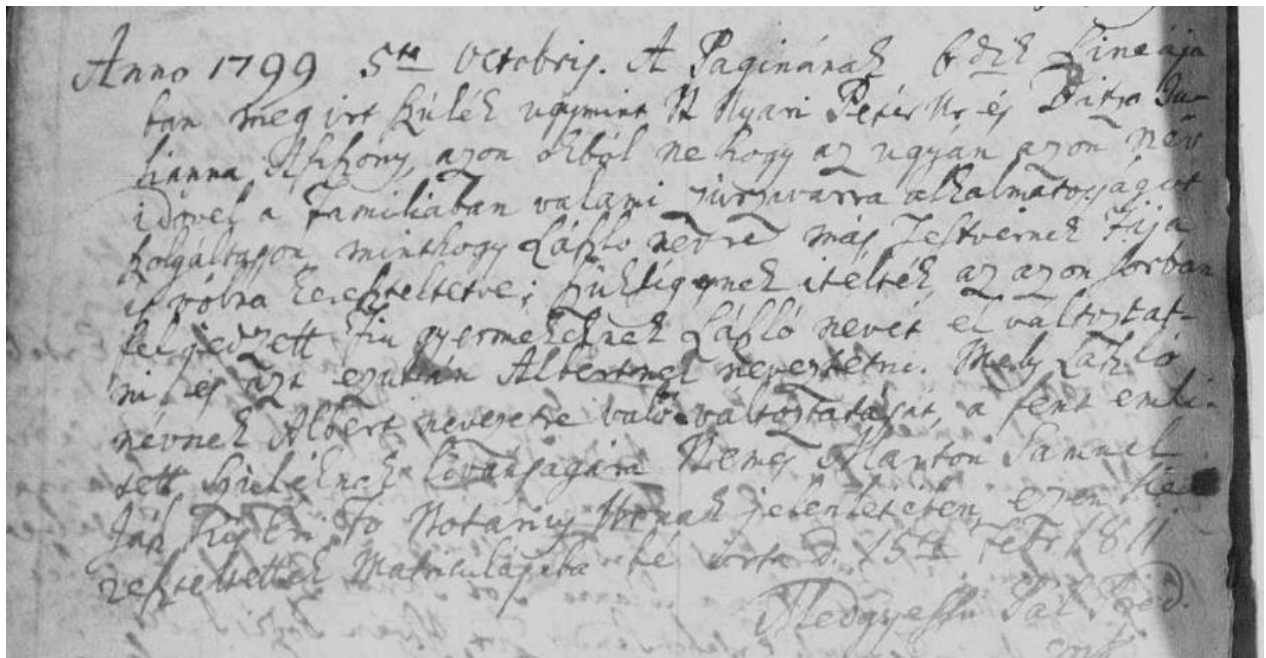 Anno 1799 5ta Octobris. A Paginának 6dik Lineája
ban meg irt szülék ugymint N Nyari Péter Ur és Ju-
liánna Aszszony, azon okból ne hogy az ugyan azon név
idővel a Familiában valami zurzavarra alkalmatosságot
szolgáltasson minthogy László névre más Testvérnek Fija
is vólna kereszteltetve; szükségesnek itélték az azon sorban
fel jedzett Fiu gyermekeknek László nevét el változtat-
ni, és azt ezután Albertnek neveztetni. Mely László
névnek Albert nevezetre való változtatását, a fent emli-
tett Szüléknek kivánságára Nemes Márton Samuel
Fő Notarius Urnak jelenlétében, ezen Ke-
reszteltettek Matriculájába bé irta d. 15a Febr 1811
Medgyessi Pál Pred.